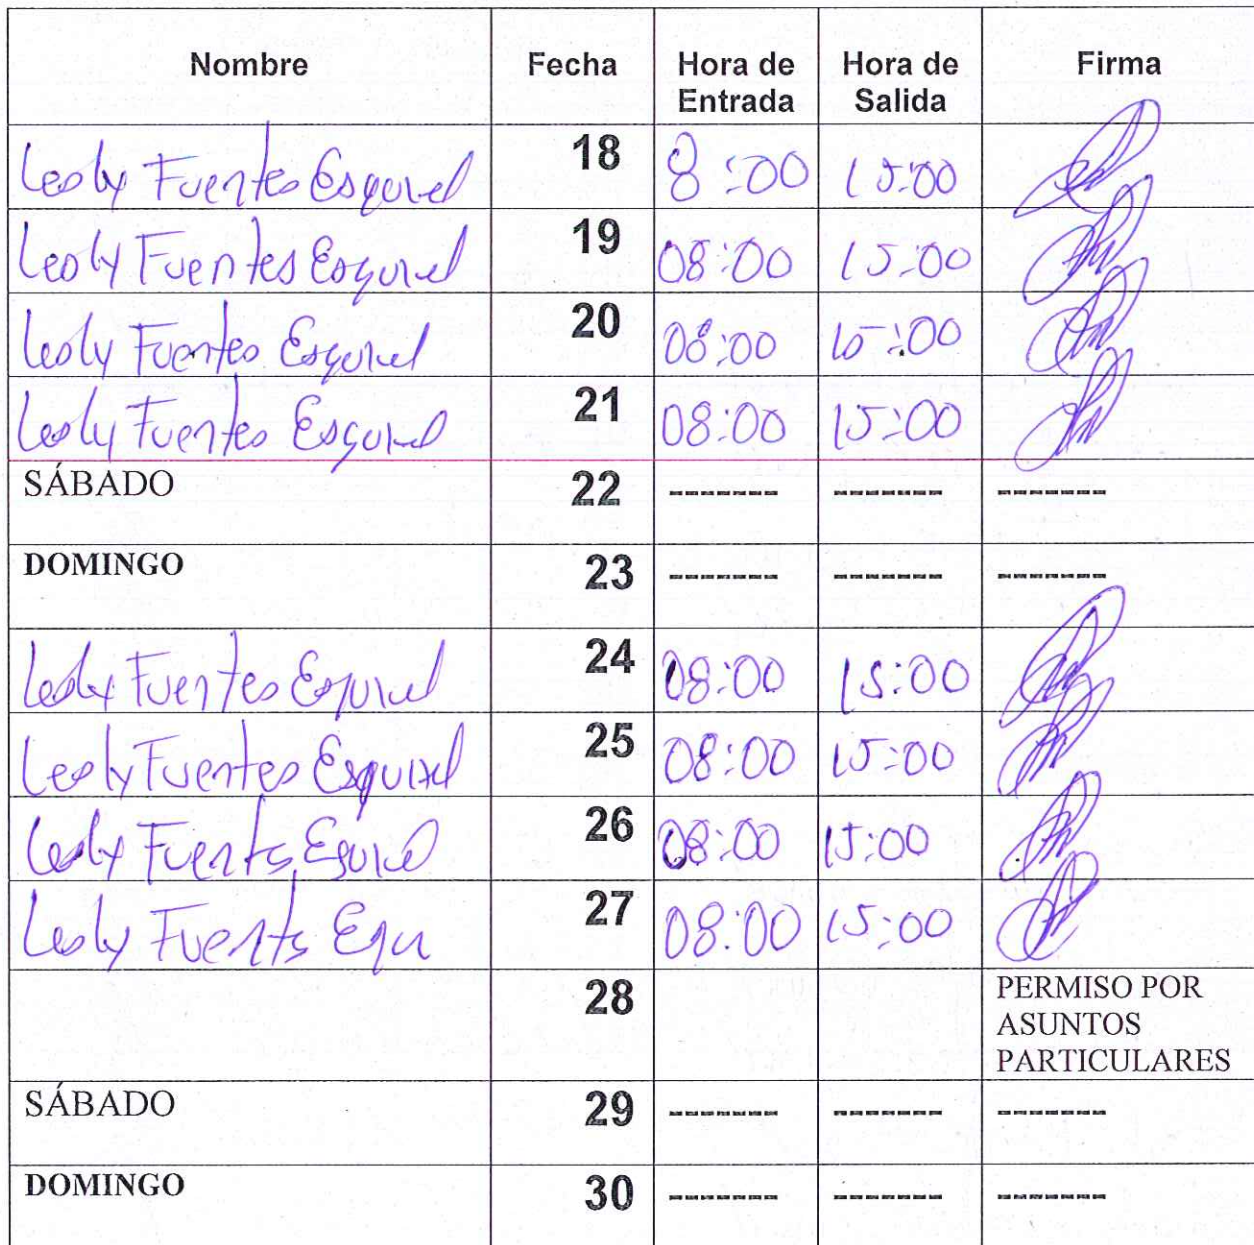 Nombre Fecha Hora de Entrada Hora de Salida Firma
Lesly Fuentes Esquivel 18 8:00 15:00
Lesly Fuentes Esquivel 19 08:00 15:00
Lesly Fuentes Esquivel 20 08:00 15:00
Lesly Fuentes Esquivel 21 08:00 15:00
SÁBADO 22 ------- ------- -------
DOMINGO 23 ------- ------- -------
Lesly Fuentes Esquivel 24 08:00 15:00
Lesly Fuentes Esquivel 25 08:00 15:00
Lesly Fuentes Esquivel 26 08:00 15:00
Lesly Fuentes 27 08:00 15:00
28 PERMISO POR
ASUNTOS
PARTICULARES
SÁBADO 29 ------- ------- -------
DOMINGO 30 ------- ------- -------